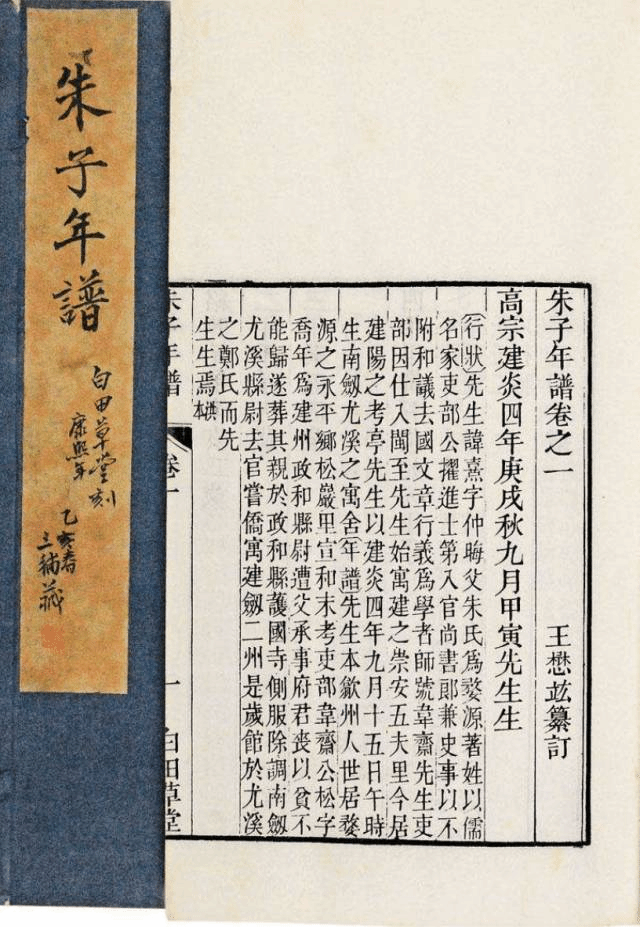 朱子年譜
白田草堂刻
康熙年
乙亥春
朱子年譜卷之一　王懋竑纂訂
高宗建炎四年庚戌秋九月甲寅先生生
行狀先生諱熹字仲晦父朱氏爲婺源著姓以儒
名家吏部公擢進士第入官尚書郎兼史事以不
附和議去國文章行義爲學者師號韋齋先生吏
部因仕入閩至先生始寓建之崇安五夫里今居
建陽之考亭先生以建炎四年九月十五日午時
生南劒尤溪之寓舍年譜先生本歙州人世居婺
源之永平鄉松巖里宣和末考吏部韋齋公松字
喬年爲建州政和縣尉遭父承事府君喪以貧不
能歸遂葬其親於政和縣護國寺側服除調南劒
尤溪縣尉去官嘗僑寓建劒二州是歲館於尤溪
之鄭氏而先
生生焉洪本
朱子年譜　卷一　一　白田草堂